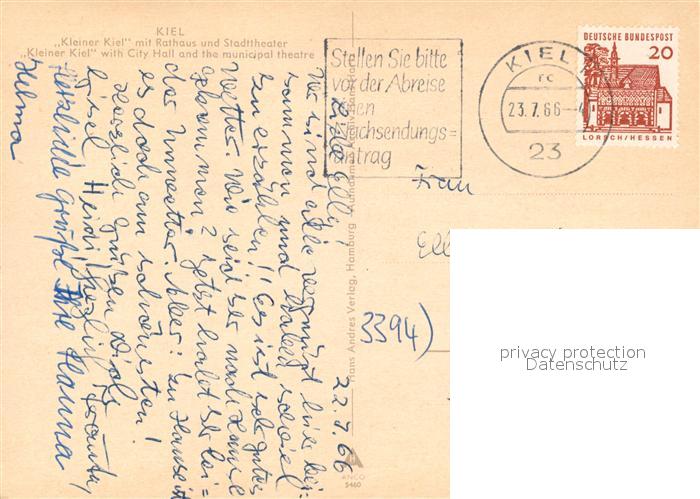 KIEL
„Kleiner Kiel" mit Rathaus und Stadttheater
„Kleiner Kiel" with City Hall and the municipal theatre
Stellen Sie bitte
vor der Abreise
einen
Nachsendungs=
antrag
KIEL
rc
23.7.66-
23
DEUTSCHE BUNDESPOST
20
LORSCH/HESSEN
Frau
3394)
22.7.66
Elli!
Wir sind alle vergnügt hier bei=
sammen und haben soviel
zu erzählen!! Es ist gutes
Wetter. Wie seid ihr nach Hause
gekommen? Jetzt habt ihr
das Unwetter. Aber: zu Hause ist
es doch am schönsten!
Herzlich grüßen Dich
Gisel, Heidi,
Herzliche Grüße Ihre Hanna
Helma
Hans Andres Verlag, Hamburg
ANCO
5460
privacy protection
Datenschutz